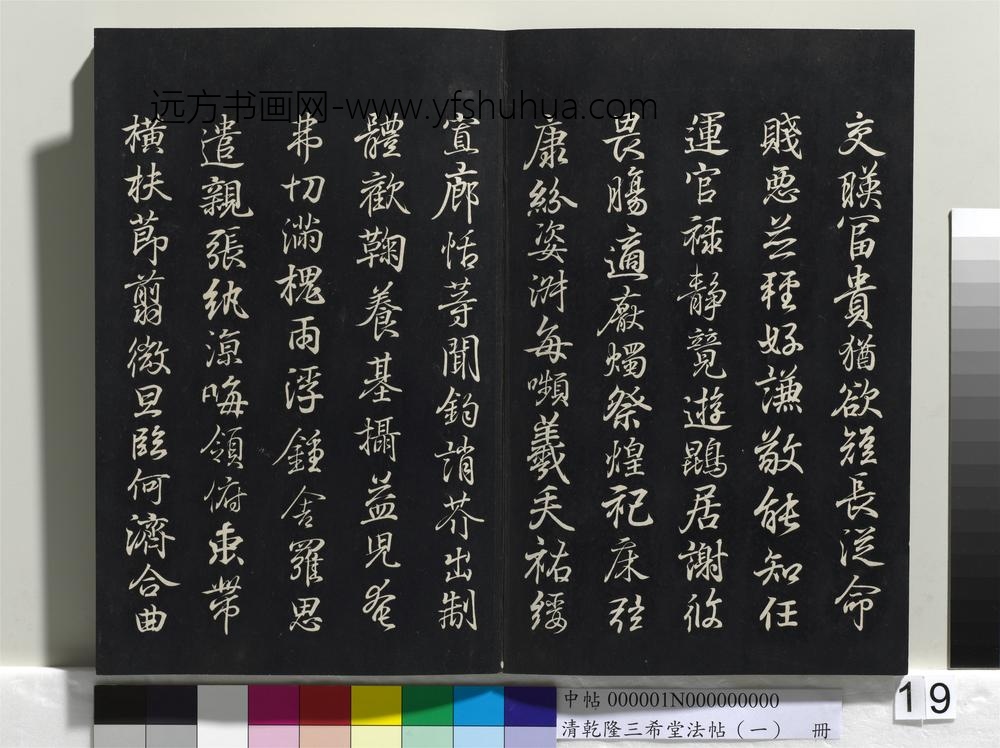 交暎富貴猶欲短長從命
賤惡並輕好謙敬能知任
運官祿靜競遊鵾居謝攸
畏腸適廠燭祭煌祀床弦
康紛姿淵每嚬羲矢祐纓
宣廊恬等聞鈞誚芥出制
體歡鞠養基攝益兒奄
弗切滿槐雨浮鍾舍羅思
遣親張紈涼晦領俯束帶
橫扶莭翦微旦臨何濟合曲
远方书画网-www.yfshuhua.com
中帖 000001N000000000
清乾隆三希堂法帖（一） 册
19